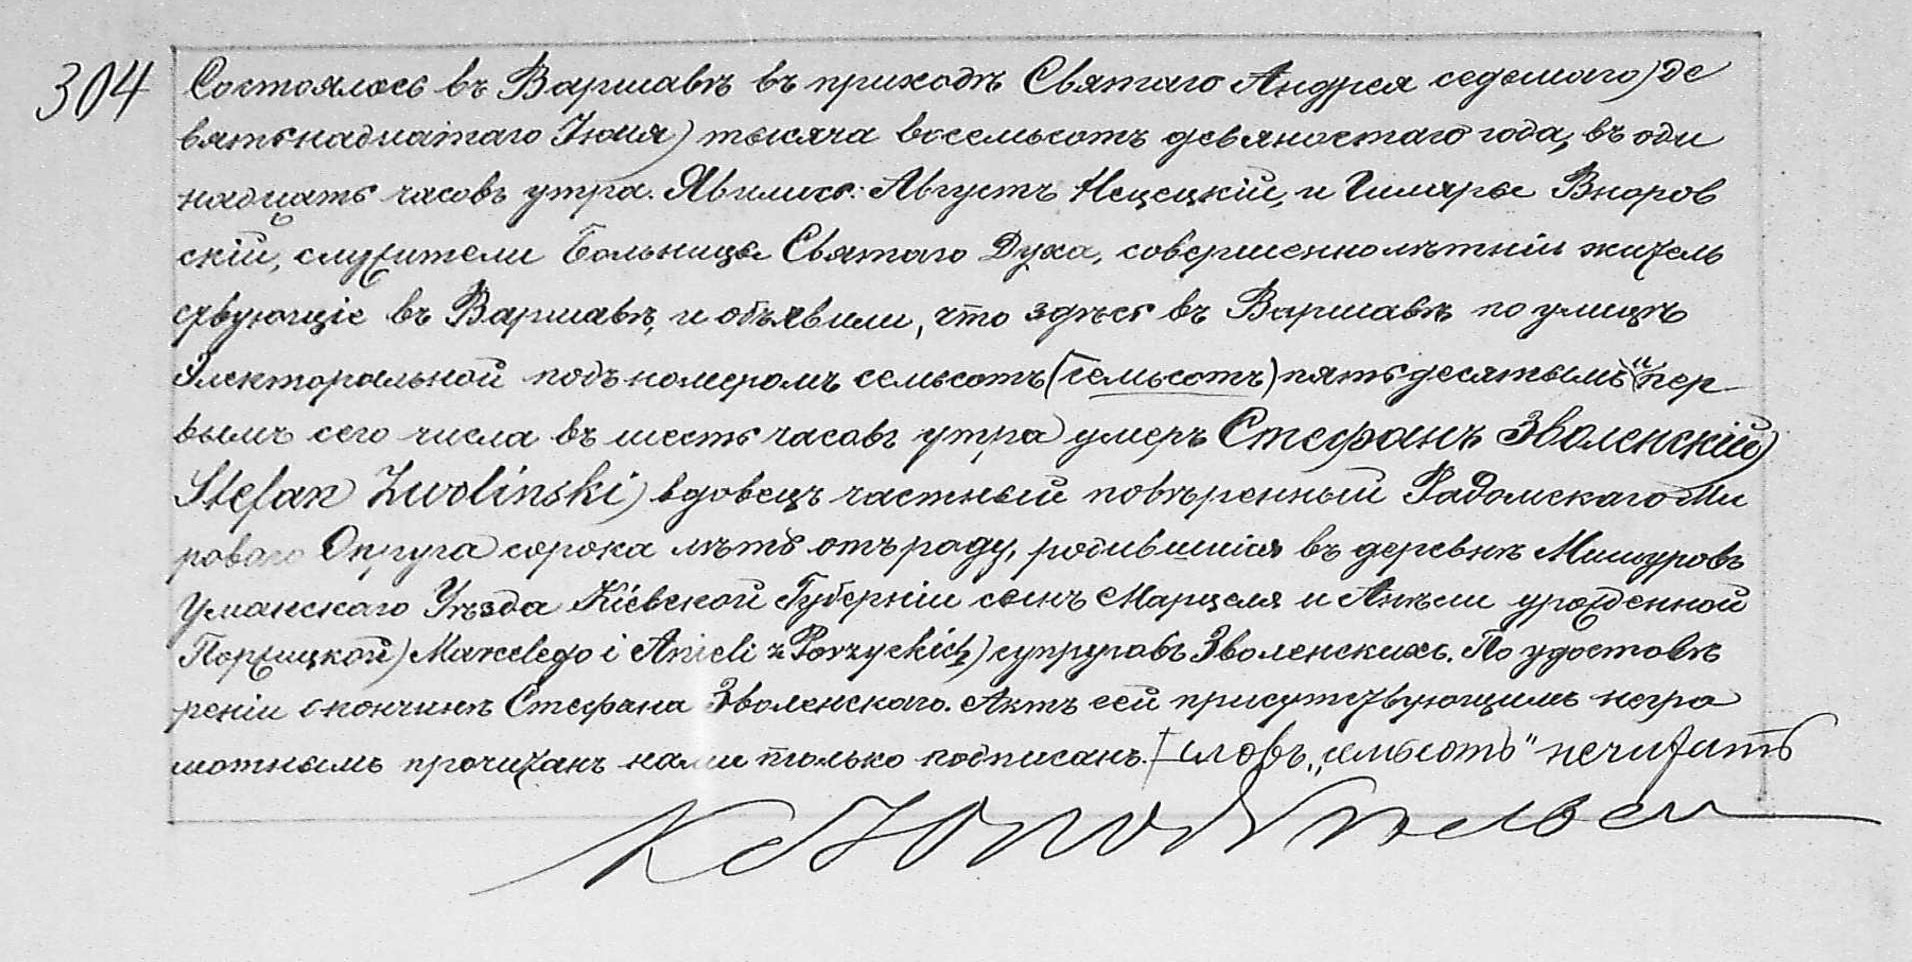 304
Состоялось въ Варшавѣ въ приходѣ Святаго Андрея седьмаго) де
вятьнадцатаго Іюня) тысяча восемьсотъ девяностаго года, въ оди
надцать часовъ утра. Явились: Августъ Нецецкій, и Вноров
скій, служители Больницы Святаго Духа, совершеннолѣтніи житель
ствующіе въ Варшавѣ, и объявили, что здѣсь въ Варшавѣ по улицѣ
Электоральной подъ номеромъ семьсотъ (семьсотъ) пятьдесятымъ и пер
вымъ сего числа въ шесть часовъ утра умеръ Стефанъ Зволенскій)
Stefan Zwolinski) вдовецъ частный повѣренный Радомскаго Ми
роваго Округа сорока лѣтъ отъ роду, родившійся въ деревнѣ Мишуровъ
Уманскаго Уѣзда Кіевской Губерніи сынъ Марцеля и Анѣли урожденной
Поржицкой) Marcelego i Anieli z Porzyckich) супруговъ Зволенскихъ. По удостовѣ
реніи о кончинѣ Стефана Зволенскаго. Актъ сей присутствующимъ негра
мотнымъ прочитанъ нами только подписанъ. словъ „семьсотъ" нечитать